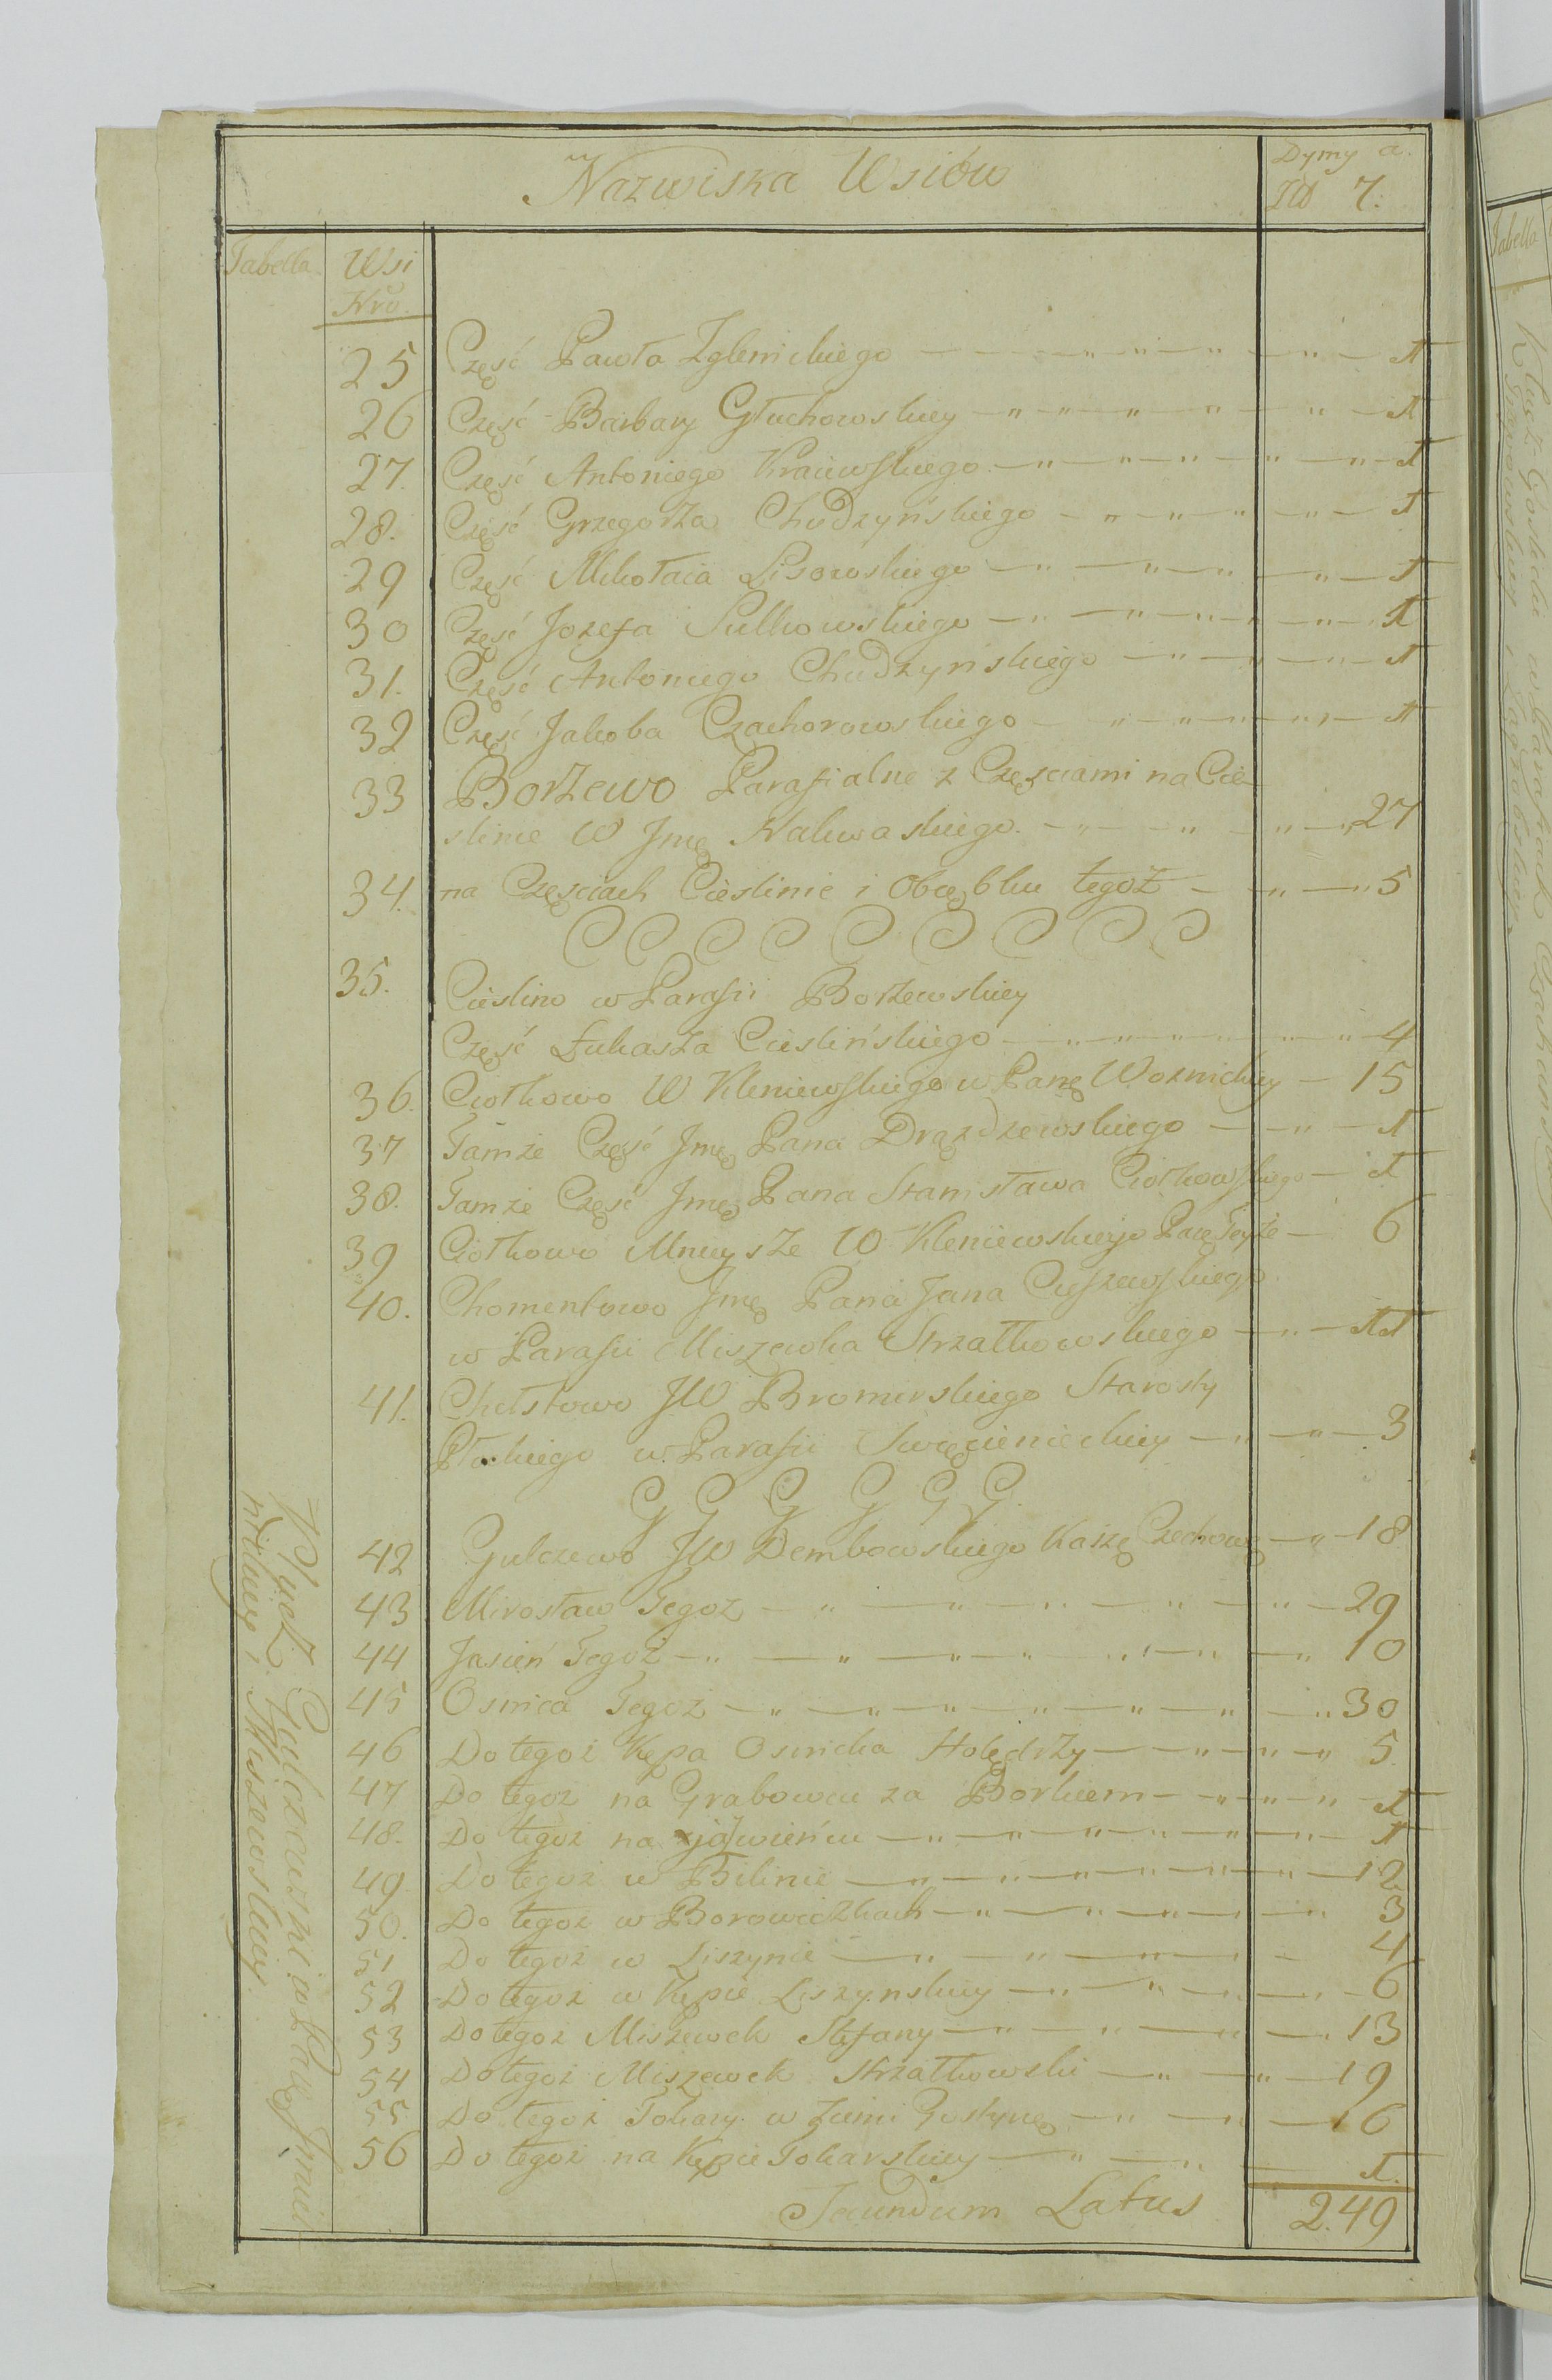 Nazwiska Wsiów
Dymy a.
Złł 7.
Tabella. Wsi
Nro.
25 Część Pawła Zglenickiego — 1
26 Część Barbary Głuchowskiey — 1
27. Część Antoniego Kraiewskiego — 1
28. Część Grzegorza Chudzyńskiego — 1
29 Część Mikołaia Lisowskiego — 1
30 Część Jozefa Sulkowskiego — 1
31. Część Antoniego Chudzyńskiego — 1
32 Część Jakoba Czachorowskiego — 1
33 Borzewo Parafialne z Częsciami na Cie-
slinie W Jmę Nakwaskiego. — 27
34. na Częsciach Cieslinie i Obrębku tegoż — 5
C C C C C C C C C
35. Cieslino w Parafii Borzewskiey
Część Łukasza Cieslińskiego — 4
36. Ciołkowo W Kleniewskiego w Parę Woznickiey — 15
37 Tamże Część Jmę Pana Drązdzewskiego — 1
38. Tamże Część Jmę Pana Stanisława Ciołkowskiego — 1
39 Ciołkowo Mnieysze W Kleniewskiego Parę Teyże — 6
40. Chomentowo Jmę Pana Jana Cieszewskiego
w Parafii Miszewka Strzałkowskiego — 11
41. Chełstowo JW Bromirskiego Starosty
Płockiego w Parafii Swięcienieckiey — 3
G G G G G G
42 Gulczewo JW Dembowskiego Kasztę Czechowę — 18
43 Mirosław Tegoż — 29
44 Jasień Tegoż — 10
45 Osnica Tegoż — 30
46 Do tegoż Kępa Osnicka Holędrzy — 5
47 Do tegoż na Grabowcu za Borkiem — 1
48. Do tegoż na — 1
49. Do tegoż w Bilinie — 12
50. Do tegoż w Borowiczkach — 3
51 Do tegoż w Liszynie — 4
52 Do tegoż w Kępie Liszynskiey — 6
53 Do tegoż Miszewek Stefany — 13
54 Do tegoż Miszewek Strzałkowski — 19
55 Do tegoż Tokary w Ziemi Gostynę — 16
56 Do tegoż na Kępie Tokarskiey — 1.
Secundum Latus 249
Klucz Gulczewski w Parę Jmiel
nickiey i Miszewskiey.
Tabella